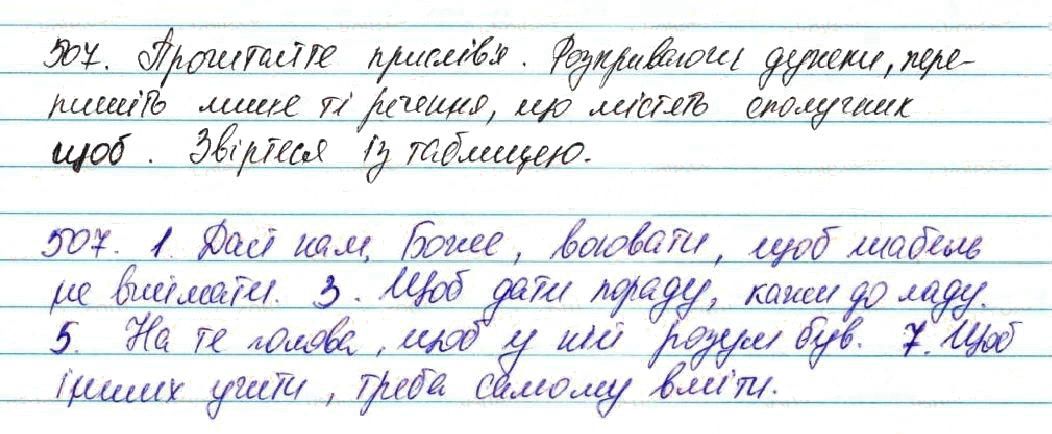 507. Прочитайте прислів'я. Розкриваючи дужки, пере-
пишіть лише ті речення, що містять сполучник
щоб. Звіртеся із таблицею.
507. 1. Дай нам, Боже, воювати, щоб шабель
не виймати. 3. Щоб дати пораду, кажи до ладу.
5. На те голова, щоб у ній розум був. 7. Щоб
інших учити, треба самому вміти.